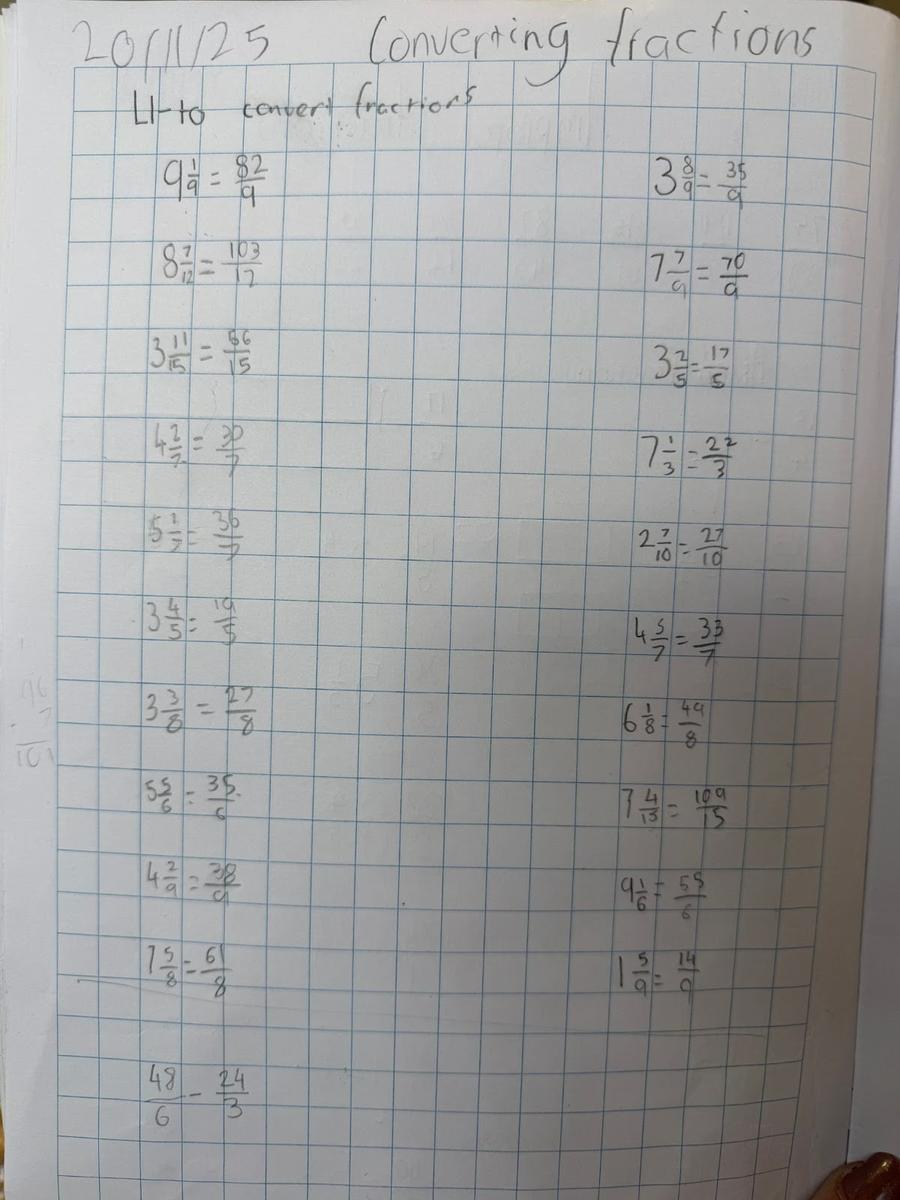 20/11/25 Converting fractions
LI-to convert fractions
9 1/9 = 82/9
8 7/12 = 103/12
3 11/15 = 56/15
4 2/7 = 30/7
5 1/7 = 36/7
3 4/5 = 19/5
3 3/8 = 27/8
5 5/6 = 35/6
4 2/9 = 38/9
7 5/8 = 61/8
48/6 - 24/3
3 8/9 = 35/9
7 7/9 = 70/9
3 2/5 = 17/5
7 1/3 = 22/3
2 7/10 = 27/10
4 5/7 = 33/7
6 1/8 = 49/8
7 4/15 = 109/15
9 1/6 = 55/6
1 5/9 = 14/9